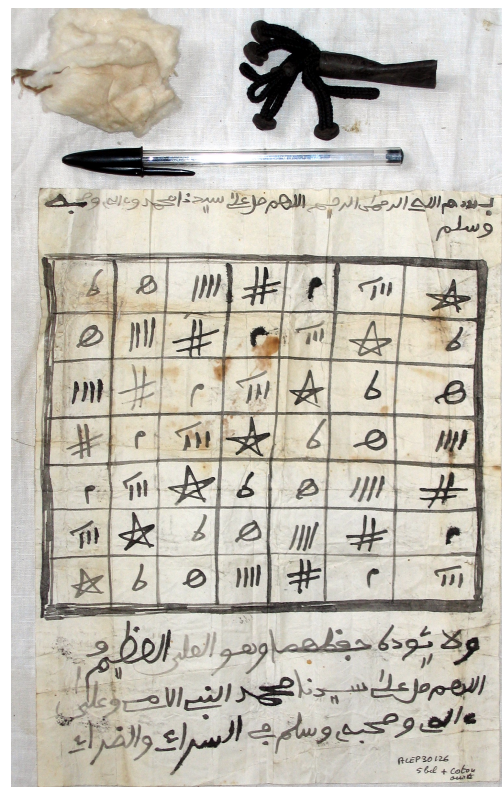 بسم الله الرحمن الرحيم اللهم صل على سيدنا محمد وءاله وصحبه
وسلم
ولا يئوده حفظهما وهو العلي العظيم
اللهم صل على سيدنا محمد النبي الامي وعلى
ءاله وصحبه وسلم في السراء والضراء
ALEP 30126
+ coton